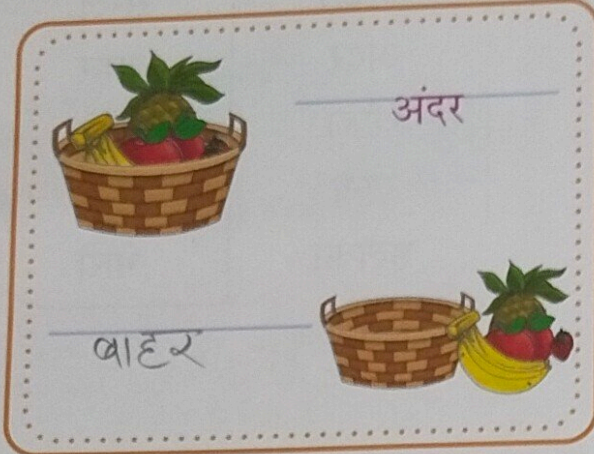 अंदर
बाहर